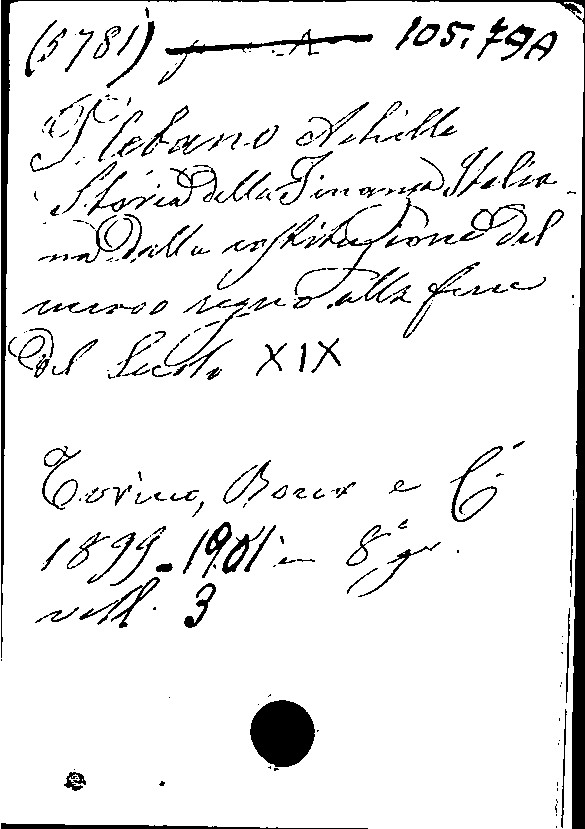 (5781) 105.79A
Plebano Achille
Storia della Finanza Italia-
na dalla costituzione del
nuovo regno alla fine
del Secolo XIX
Torino, Roux e C.
1899-1901 in 8° gr.
voll. 3